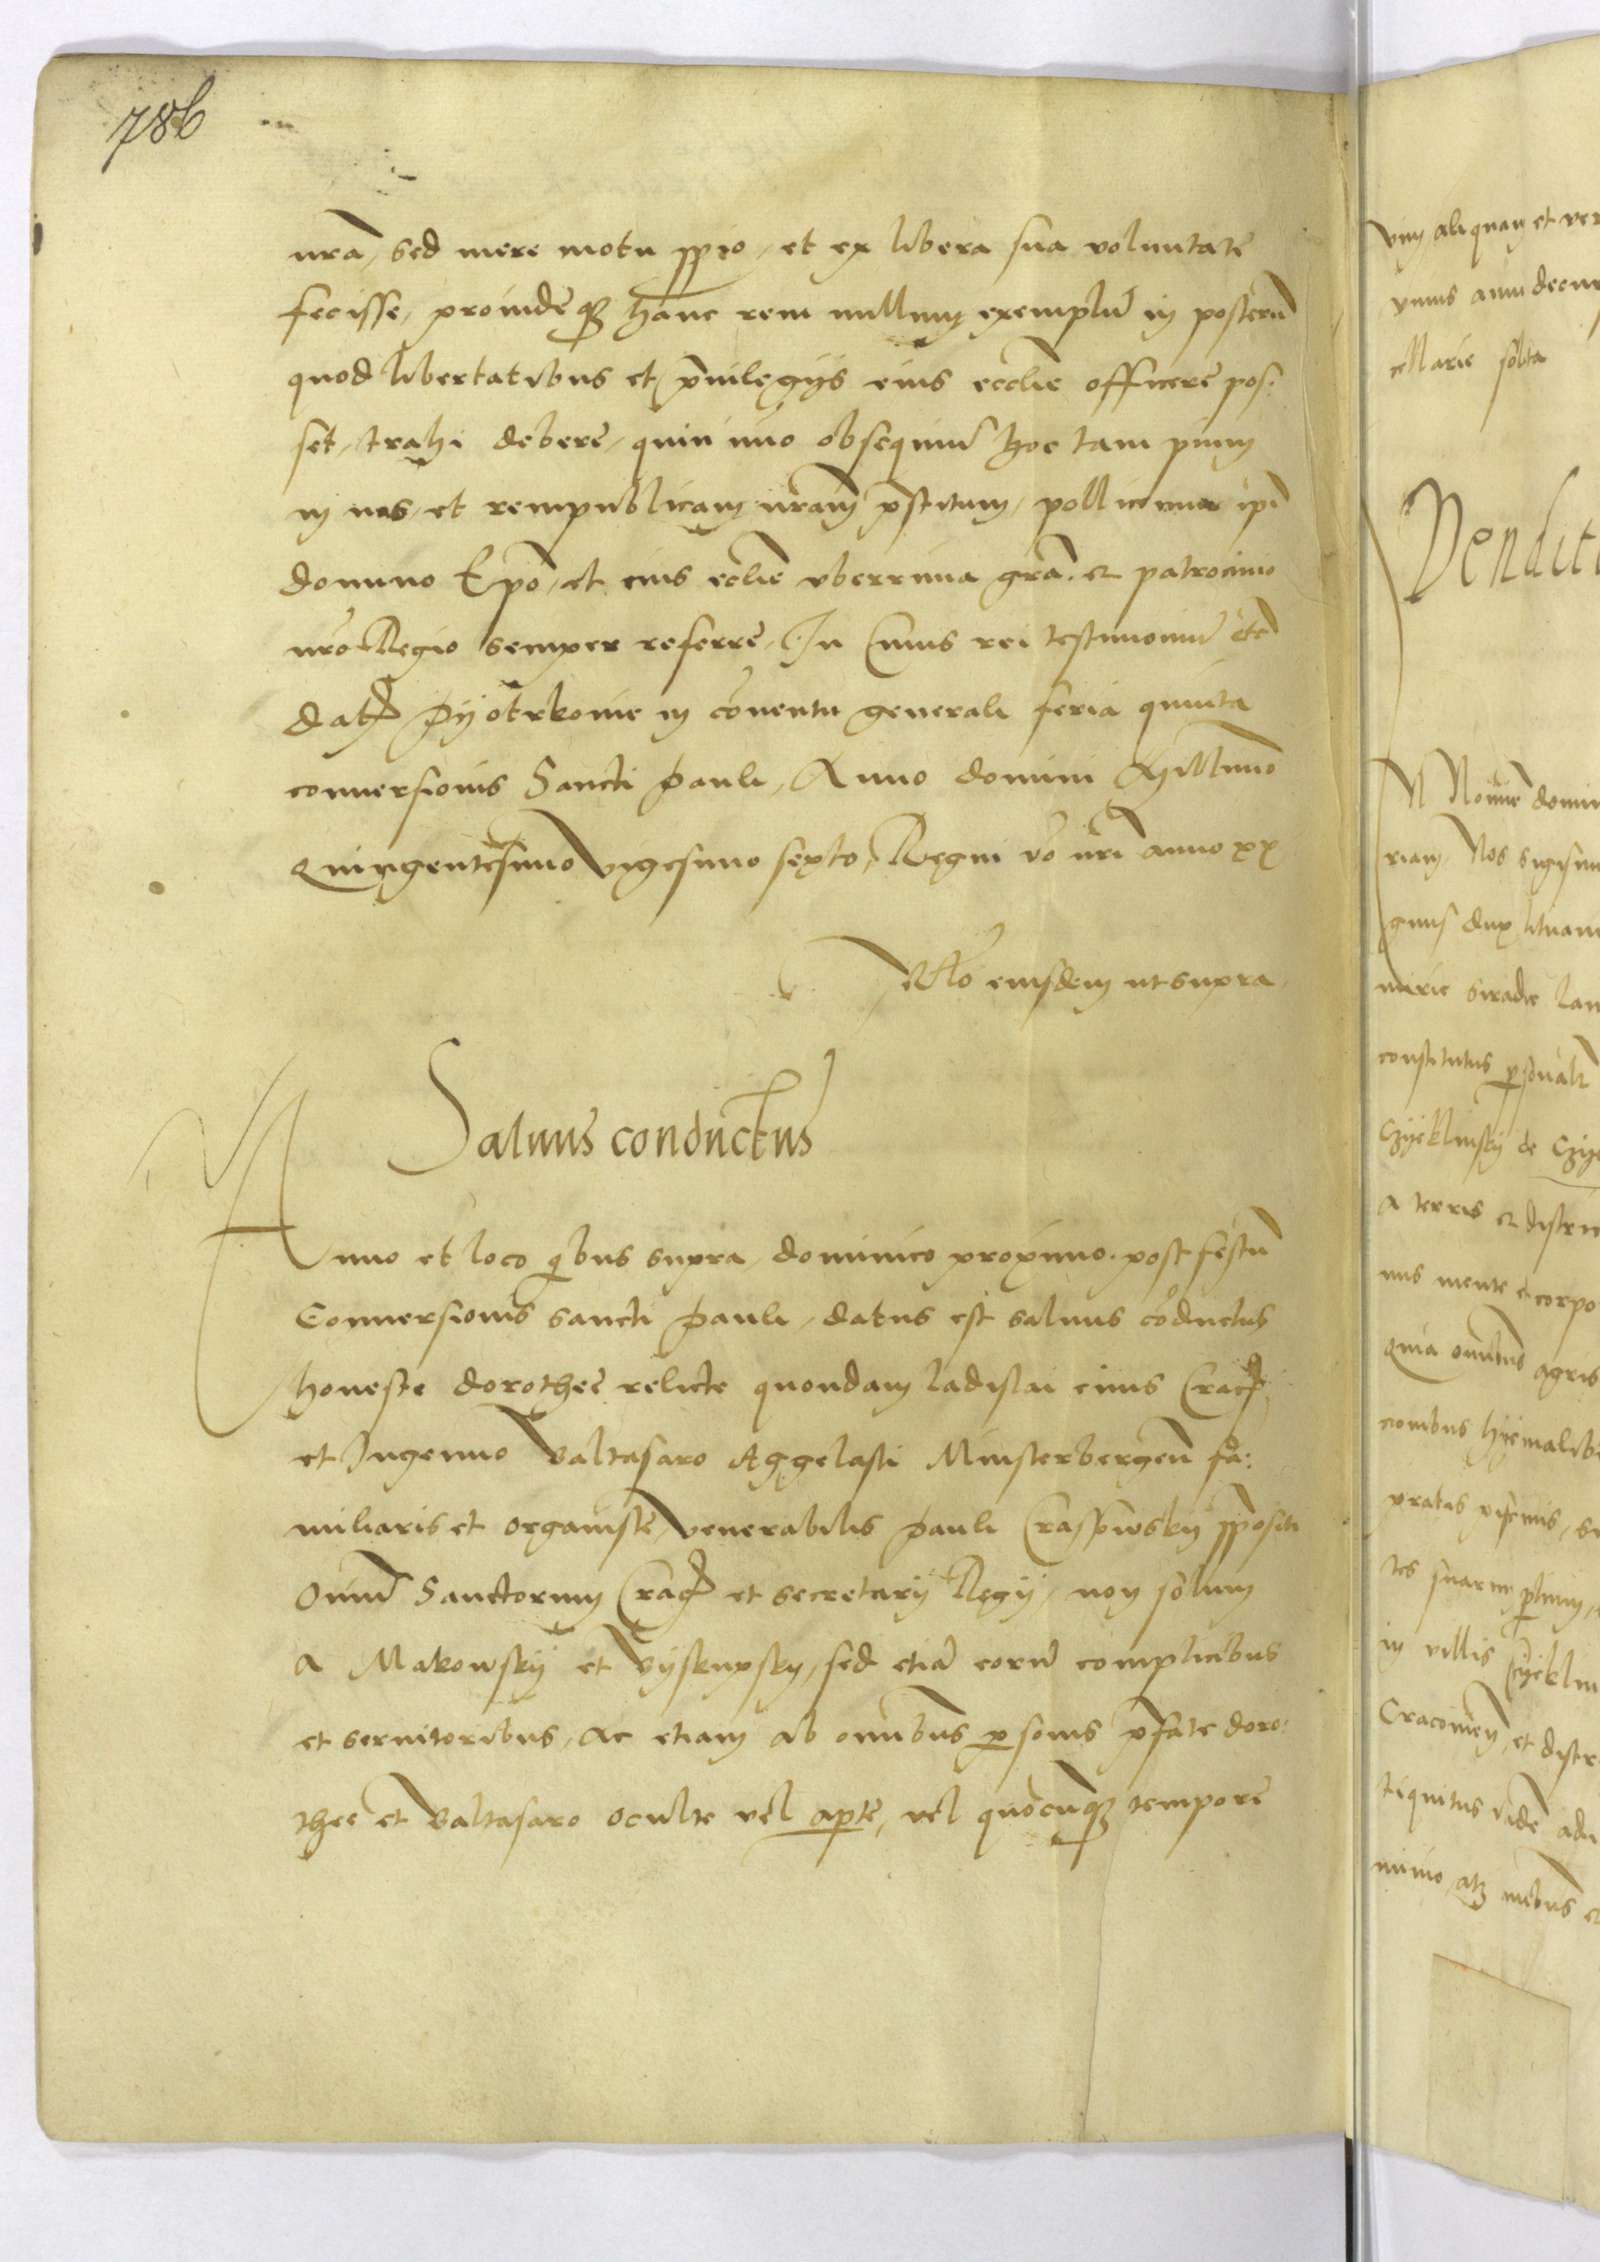 786
nrā, sed mere motu ꝓprio, et ex libera sua voluntate
fecisse, proindeqꝫ hanc rem nullum exemplū in posterū
quod libertatibus et p̄uilegijs eius ecclie officere pos:
set, trahi debere, quin imo obsequiū hoc tam pium
in nos, et rempublicam nr̄am p̄stitum, pollicemur ip̄i
domino Ep̄o, et eius ecclie vberrima grā. et patrocinio
nr̄o Regio semper referre, In Cuius rei testimoniū etc
dat̄ Pijotrkowie in cōuentu generali feria quinta
conuersionis Sancti Pauli, Anno domini Millimo
Quingentesimo vigesimo sexto, Regni v̄o nr̄i anno xx
Rēlo eiusdem ut supra
Saluus conductus
Anno et loco qibus supra, dominico proximo post festū
Conuersionis sancti Pauli, datus est saluus cōductus
honeste dorothee relicte quondam ladislai ciuis Crac̄
et Ingenuo Valtasaro Aggelasti Munsterbergen̄ fa:
miliaris et organiste venerabilis Pauli ꝓpositi
Om̄iū Sanctorum Crac̄ et secretarij Regij, non solum
a Makowskij et Vijskupskij, sed etiā eorū complicibus
et seruitoribus, Ac etiam ab om̄ibus ꝑsonis p̄fate doro:
thee et Valtasaro oculte vel aꝑte, vel quocunqꝫ tempore
vim aliquam et
vnius anni
cellarie
Vendit
N Nomine
riam, Nos
gnus dux
Siradie
constitutus ꝑsonalr
de
a terris et
nus mente et corpo
Quia om̄ibus agris
pratis
in villis
et